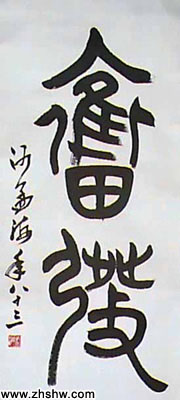 奮發
沙孟海年八十三
www.zhshw.com